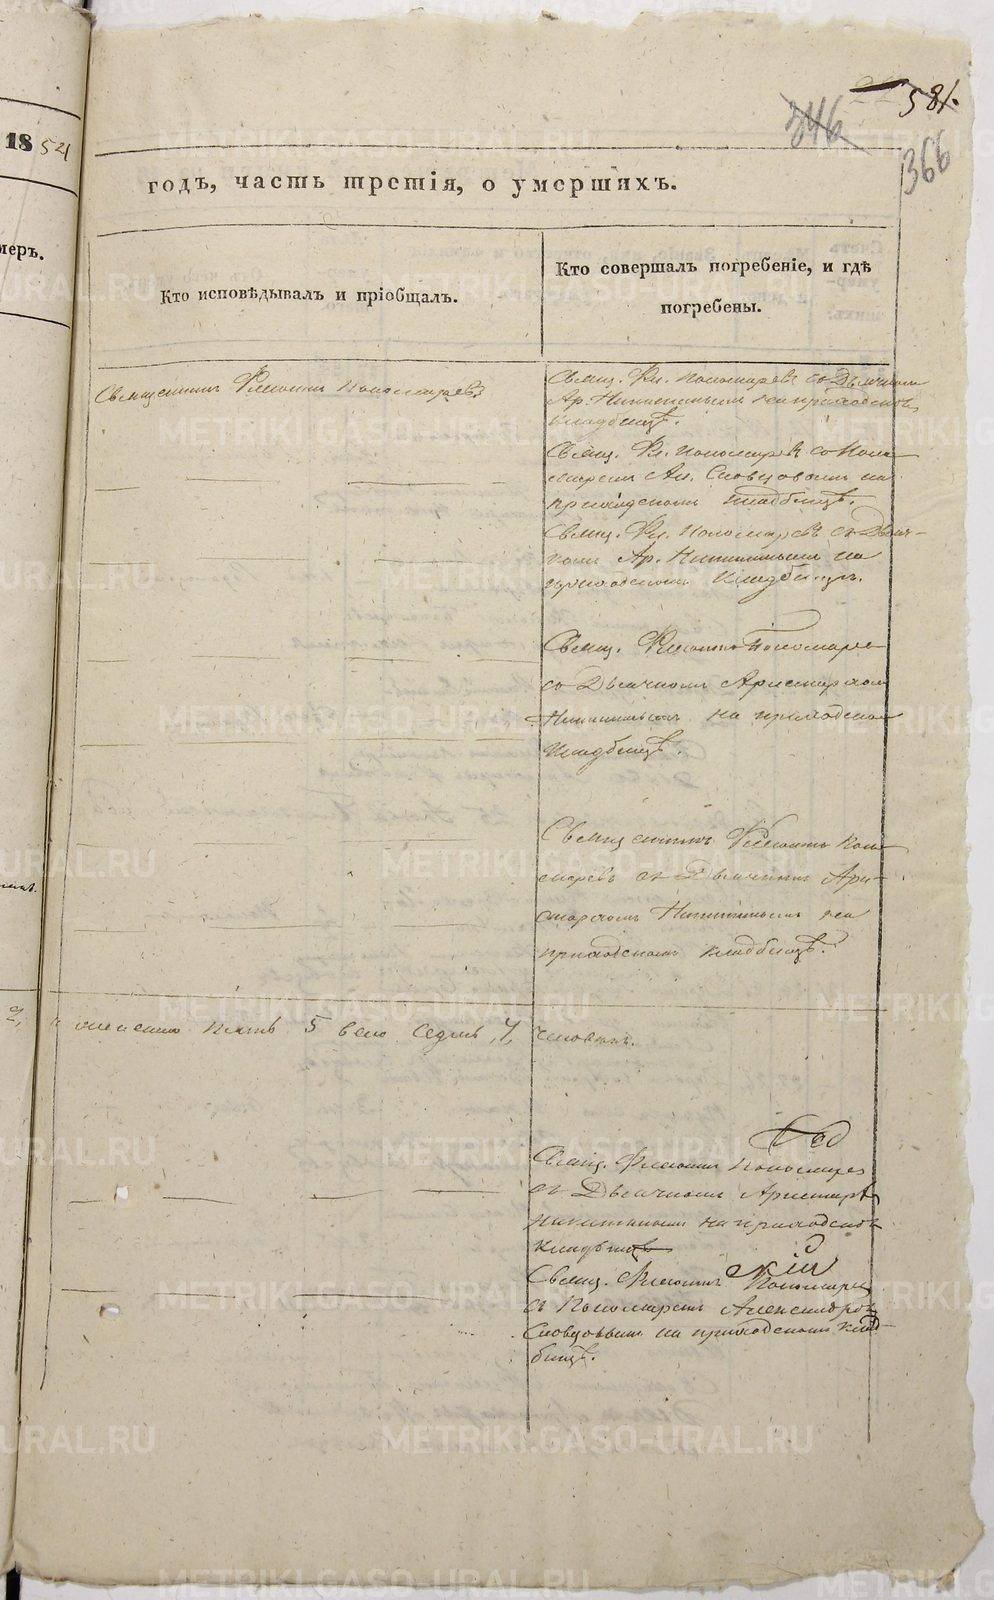 581.
346
366
18 54
годъ, часть третія, о умершихъ.
меръ.
Кто исповѣдывалъ и пріобщалъ.
Кто совершалъ погребеніе, и гдѣ
погребены.
Священникъ Филиппъ Пономаревъ
Свящ. Фил. Пономаревъ со Дьячкомъ
Ар. Никитинымъ на приходскомъ
кладбищѣ.
Свящ. Фил. Пономаревъ со Поно-
маремъ Ал. Словцовымъ на
приходскомъ кладбищѣ.
Свящ. Фил. Пономаревъ съ Дьяч-
комъ Ар. Никитинымъ на
приходскомъ кладбищѣ.
Свящ. Пономаре
со Дьячкомъ Аристархом
Никитинымъ на приходском
кладбищѣ.
Священникъ Поно-
маревъ съ Дьячкомъ Ари-
стархомъ Никитинымъ на
приходскомъ кладбищѣ.
2, женска пять 5 всего седмь 7, человѣкъ.
Свящ. Пономарев
съ Дьячкомъ Аристарх
Никитинымъ на приходском
кладбищѣ
кій
Свящ. Пономарев
съ Пономаремъ Александром
Словцовымъ на приходскомъ клад-
бищѣ.
METRIKI.GASO-URAL.RU